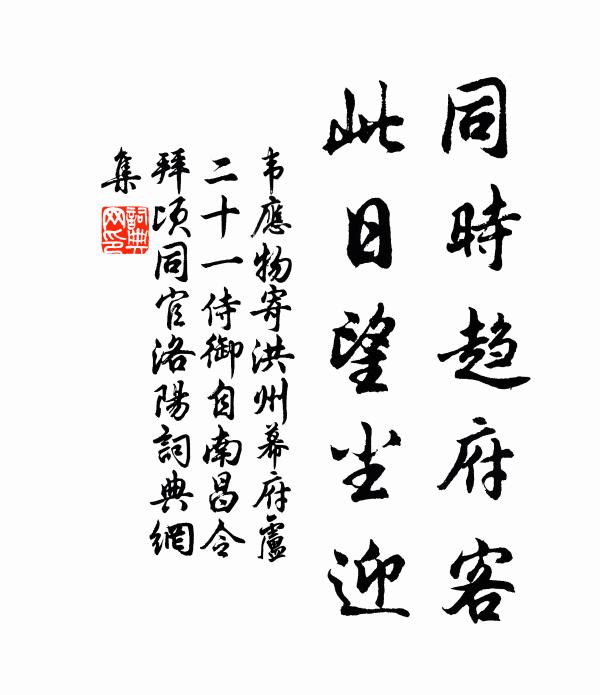 同時趋府客
此日望尘迎
韦應物寄洪州幕府廬
二十一侍御自南昌令
拜頃同官洛陽詞典網
集
詞典
网印